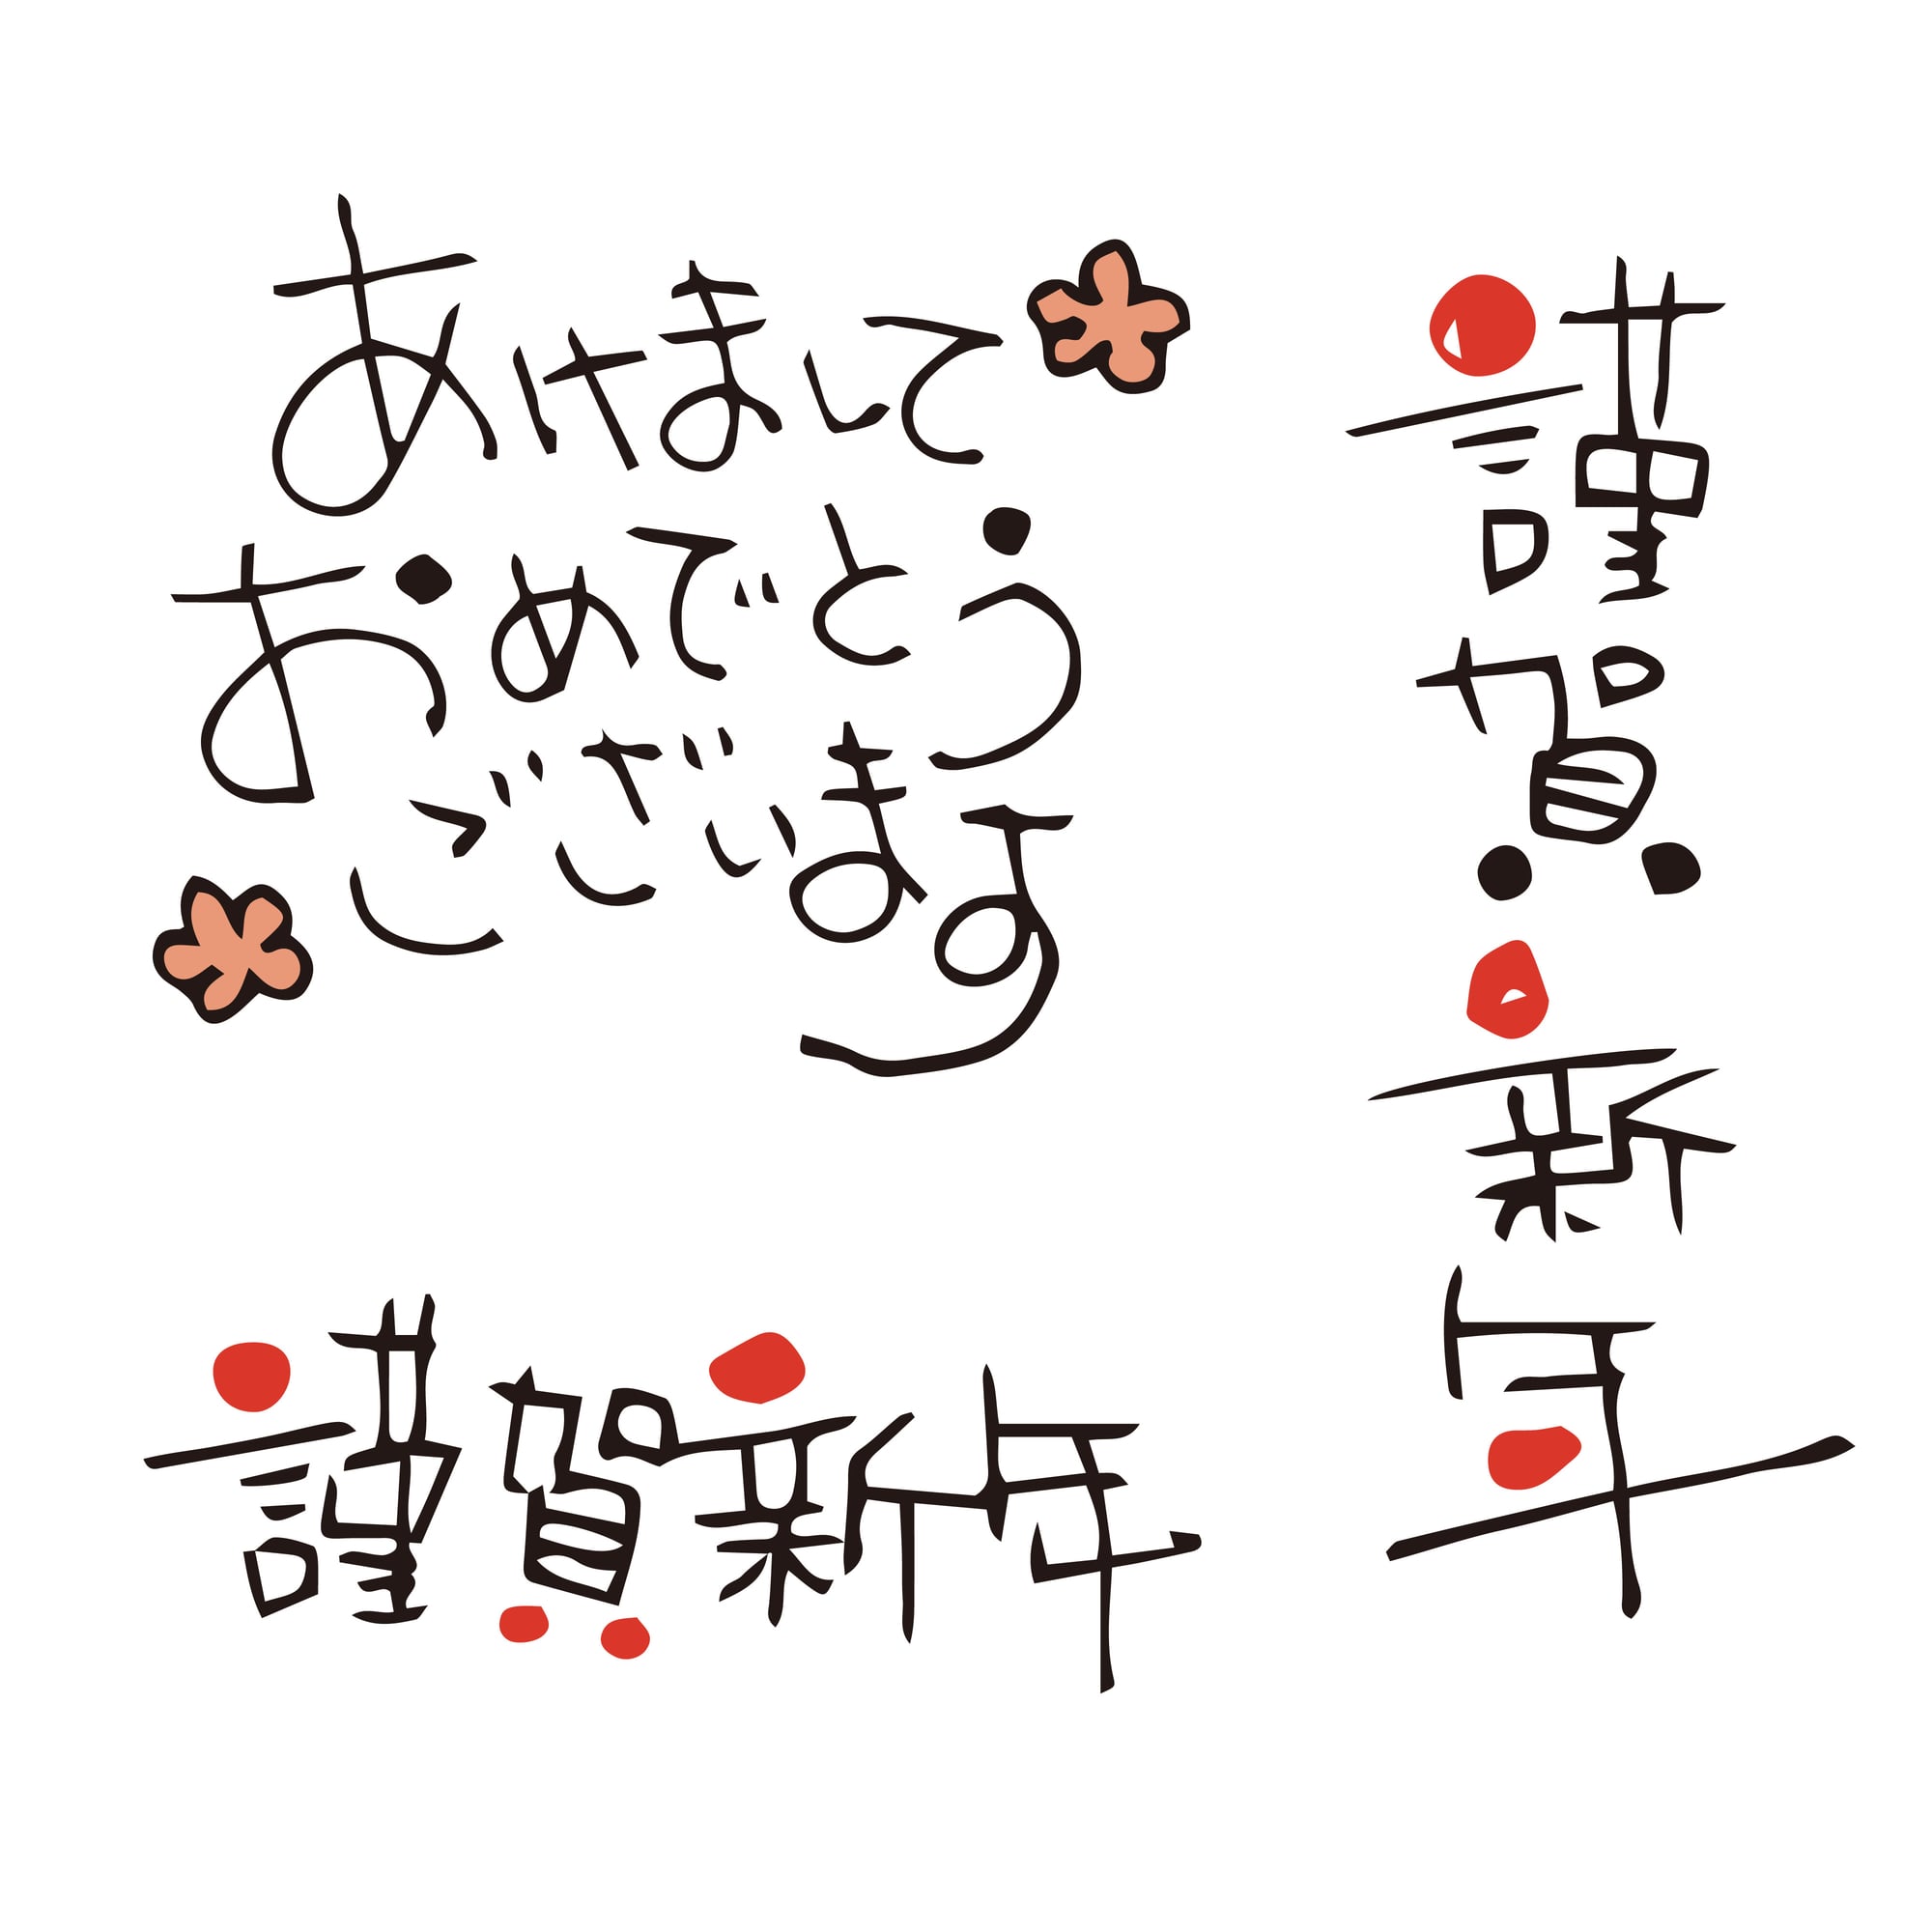 あけまして
おめでとう
ございます
謹賀新年
謹賀新年